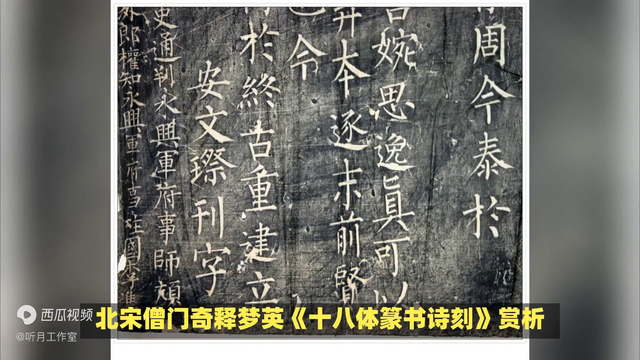 周今泰於
婉思逸眞可以
弃本逐末前賢
令
於終古重建立
安文璨刊字
史通判永興軍府事師頏
郎權知永興軍府
西瓜视频
@听月工作室
北宋僧门奇释梦英《十八体篆书诗刻》赏析